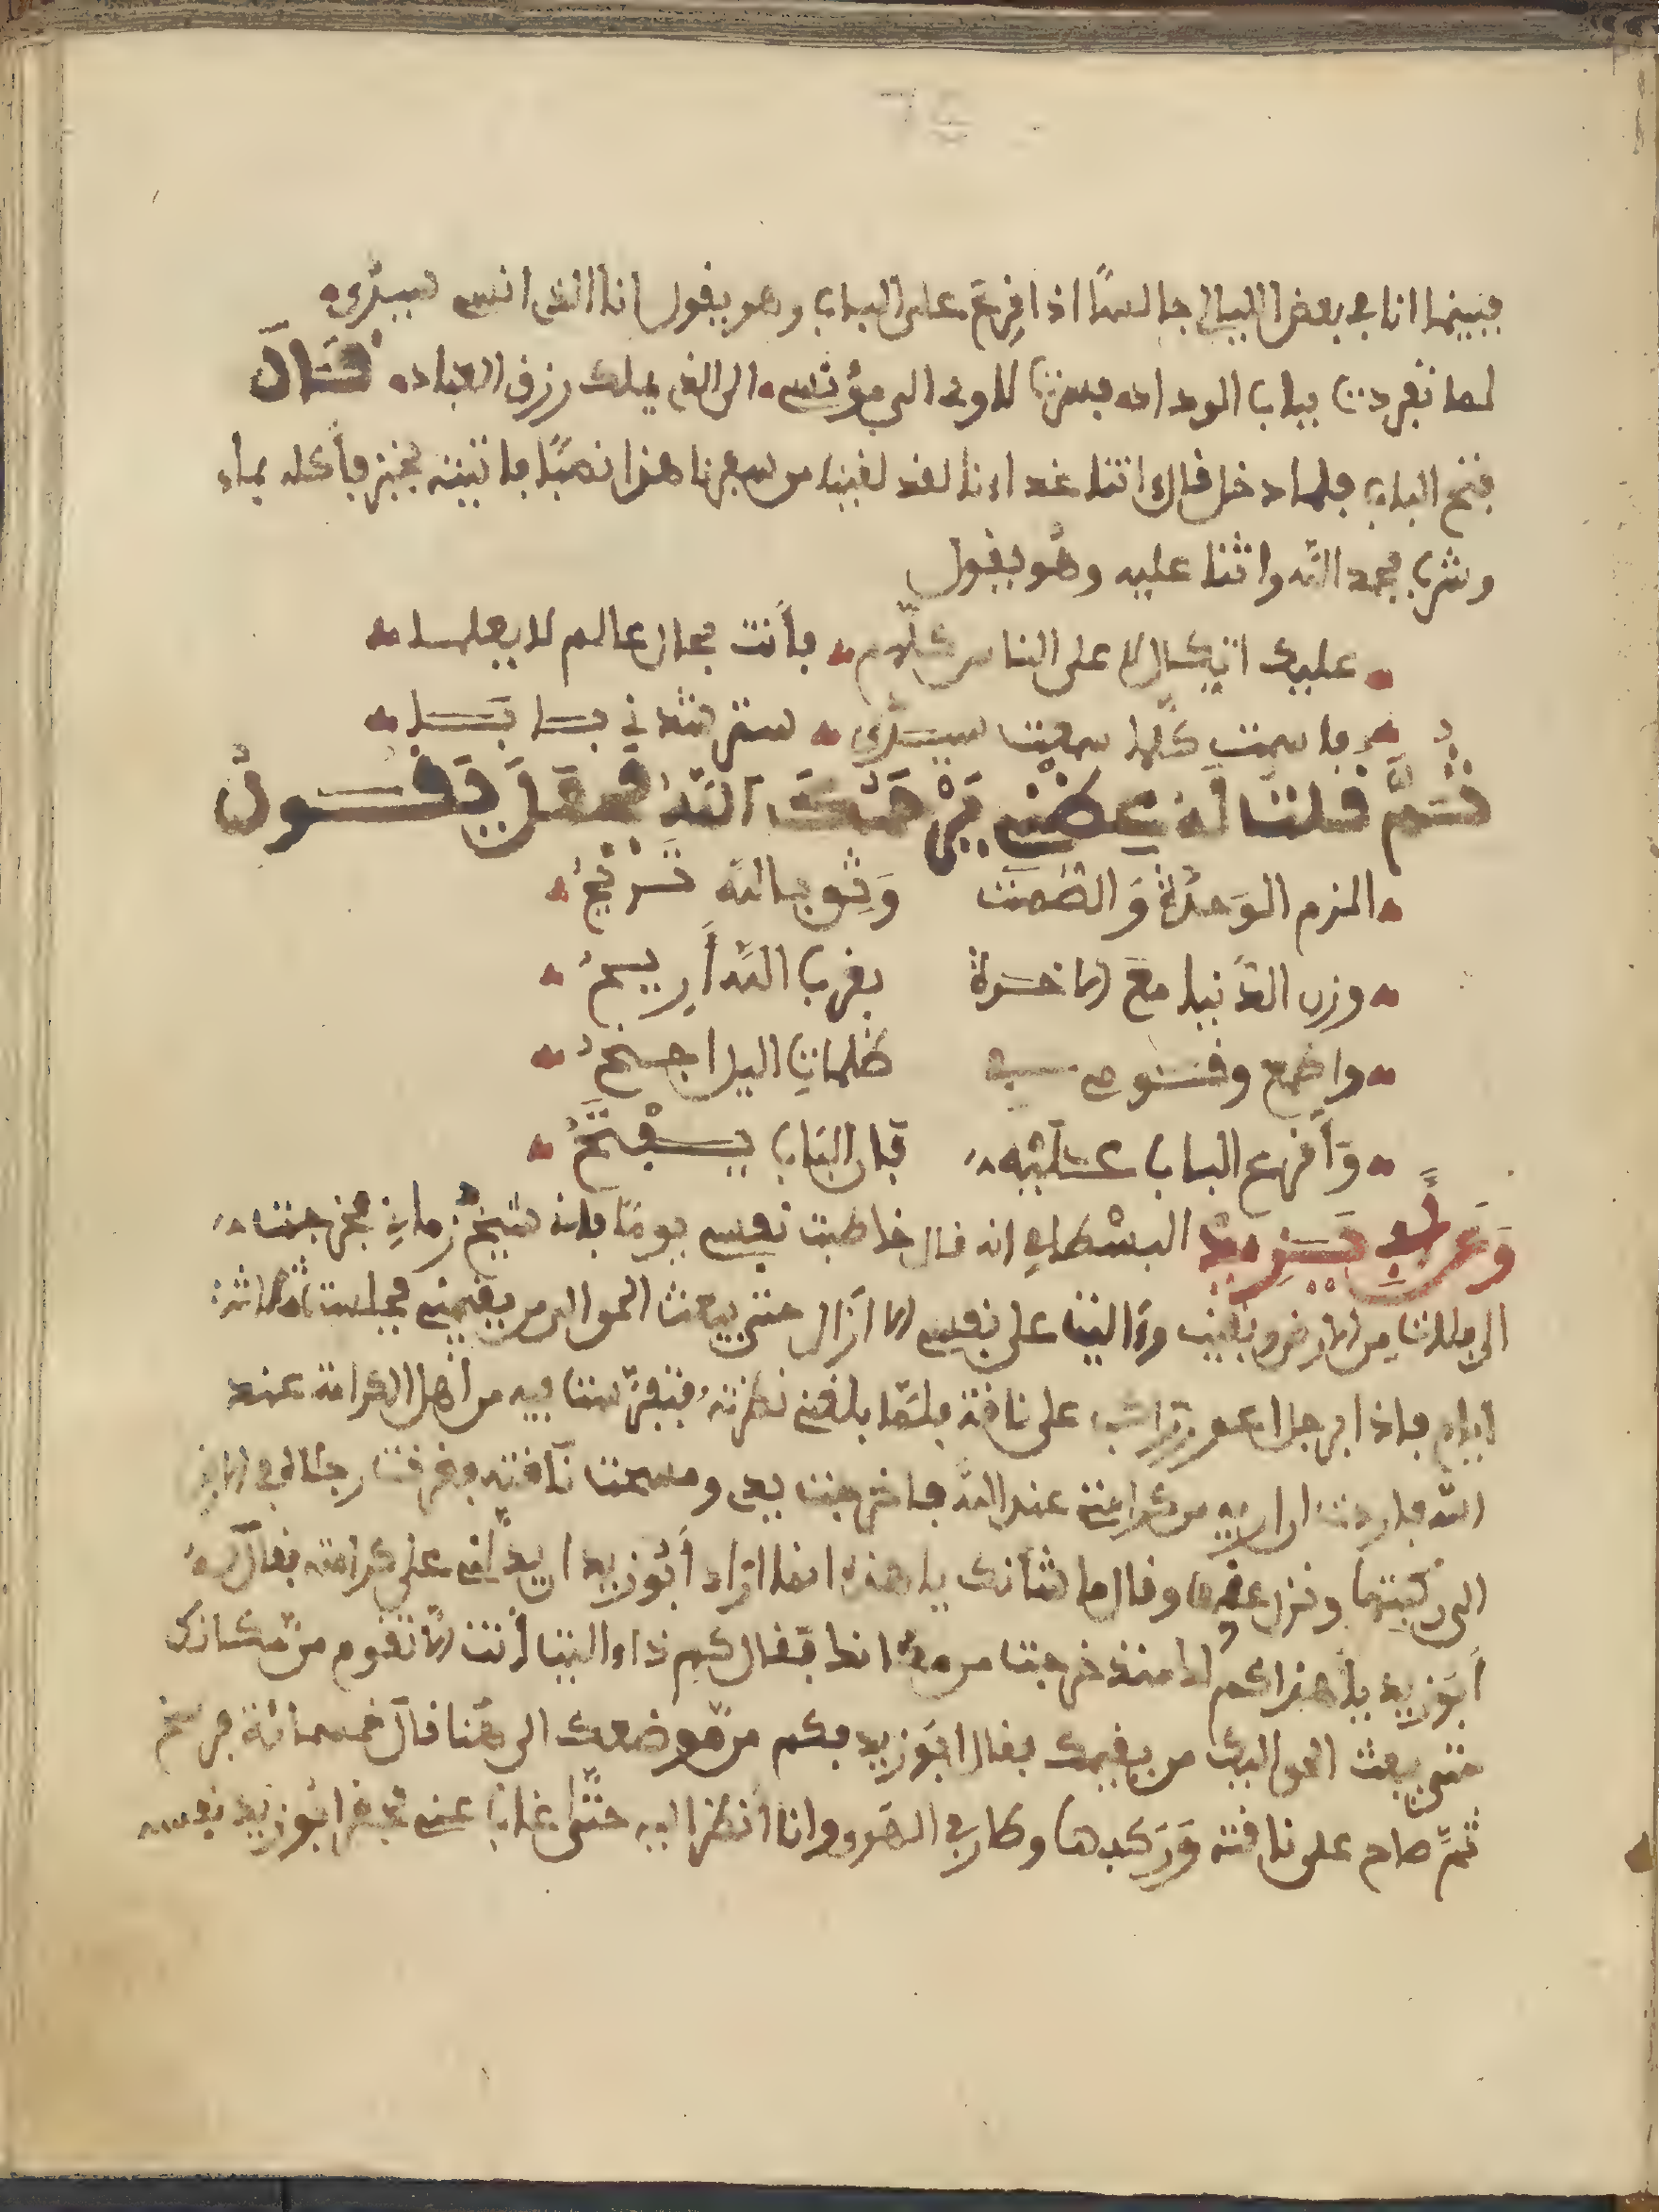 فبينما انا في بعض الليالي جالسا اذا فرع على الباب وهو يقول انا الذي انسي سيدي
لما تفردت بباب الوداد فسرت للاوى الى مؤنسي الى الذي يملك رزق العباد قال
ففتح الباب فلما دخل قال اتنا غداءنا لقد لقينا من سفرنا هذا نصبا فاتيته بخبز فأكله بماء
وشرب فحمد الله واثنا عليه وهو يقول
عليك اتكال لا على الناس كلهم فأنت بحال عالم لا يعلم
سيدي ستر
ثم قلت له عظني يرحمك الله فجعل يقول
الزم الوحدة والصمت وثق بالله تربح
وزن الدنيا مع الاخرة بقرب الله اربح
واخضع وقم ظلمات اليل اجنح
وأقرع الباب عليه فإن الباب يفتح
وعن أبي يزيد البسطامي انه قال خاطبت نفسي يوما بانه شيخ زمانه فخرجت
الى فلات من الارض وبقيت وءاليت على نفسي لا أزال حتى يبعث الحق الي من يقيمني فجلست ثلاثة
ايام فاذا برجل اعور راكب على ناقة فلما بلغني نظرته فتفرست فيه من أهل الكرامة عند
الله فاردت ان اريه من كرامتي عند الله فاخرجت يدي ومسحت ناقته فغرقت رجلاه في الارض
الى ركبتها ونزل عنها وقال ما شأنك يا هذا انما اراد أبو زيد ان يدلني على كرامته فقال له
أبو زيد يا هذا كم لك منذ خرجت من عندنا فقال كم ذا ءاليت أنت لا تقوم من مكانك
حتى يبعث الحق اليك من يقيمك فقال ابو زيد فكم من موضعك الى هنا قال خمسمائة فرسخ
ثم صاح على ناقته وركبها وطار في الهوى وانا أنظر اليه حتى غاب عني فحقر ابو زيد نفسه